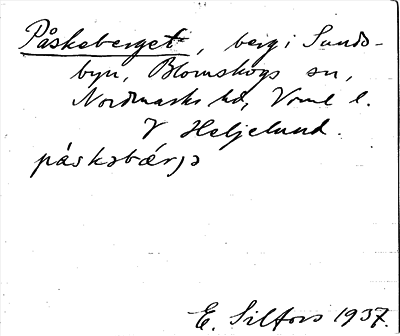 Påskeberget, berg i Sunds-
byn, Blomskogs sn,
Nordmarks hd, Vrml l.
V Heljelund.
påskəbærjə
E. Silfors 1937.